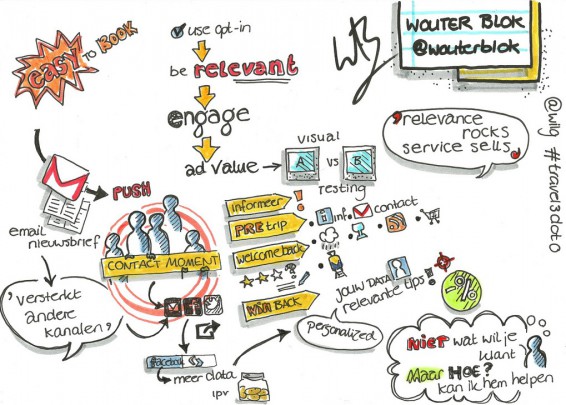 easy
to BOOK
use opt-in
be relevant
engage
ad value
visual
A vs B
testing
WOUTER BLOK
@wouterblok
relevance
rocks
service sells
@wilg #travel3dot0
email
nieuwsbrief
PUSH
CONTACT MOMENT
informeer
PRE trip
info contact
welcome back
WIN BACK
JOUW DATA
relevante tips!
-%
personalized
"versterkt
andere
kanalen"
facebook
meer data
ipv
NIET wat wil je
want
Maar HOE?
kan ik hem helpen